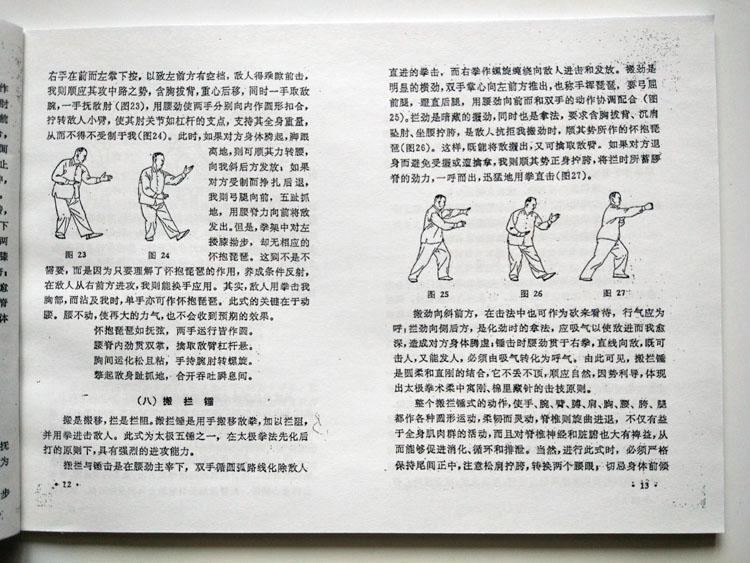 右手在前而左掌下按，以致左前方有空档，敌人得乘隙前击，
我则顺应其攻中路之势，含胸拔背，重心后移，同时一手取敌
腕，一手抚敌肘（图23），用腰劲使两手分别向内作圆形扣合，
拧转敌人小臂，使其肘关节如杠杆的支点，支持其全身重量，
从而不得不受制于我（图24）。此时，如果对方身体腾起，脚跟
离地，则可顺其力转腰，
向我斜后方发放；如果
对方受制而挣扎后退，
我则弓腿向前，五趾抓
地，用腰脊力向前将敌
发出。但是，拳架中对左
搂膝拗步，却无相应的
怀抱琵琶。这到不是不
图 23
图 24
需要，而是因为只要理解了怀抱琵琶的作用，养成条件反射，
在敌人从右前方进攻，我则能换手应用。其实，敌人用拳击我
胸部，而沾及我时，单手亦可作怀抱琵琶。此式的关键在于动
腰。腰不动，使再大的力气，也不会收到预期的效果。
怀抱琵琶如抚弦，两手运行皆作圆。
腰脊内劲贯双掌，擒取敌臂杠杆悬。
胸间运化松且粘，手持腕肘转螺旋。
擎起敌身趾抓地，合开吞吐瞬息间。
（八）搬 拦 锤
搬是搬移，拦是拦阻。搬拦锤是用手搬移敌拳，加以拦阻，
并用拳进击敌人。此式为太极五锤之一，在太极拳法先化后
打的原则下，具有强烈的进攻能力。
搬拦与锤击是在腰劲主宰下，双手循圆弧路线化除敌人
· 12 ·
直进的拳击，而右拳作螺旋缠绕向敌人进击和发放。搬劲是
明显的横劲，双手掌心向左前方推出，也称手挥琵琶，要弓屈
前腿，蹬直后腿，用腰劲向前而和双手的动作协调配合（图
25）。拦劲是暗藏的捋劲，同时也是拿法，要求含胸拔背、沉肩
坠肘、坐腰拧胯，是敌人抗拒我搬劲时，顺其势所作的怀抱琵
琶（图26）。这样，既能将敌捋出，又可擒取敌臂。如果对方退
身而避免受捋或遭擒拿，我则顺其势正身拧胯，将拦时所蓄腰
脊的劲力，一呼而出，迅猛地用拳直击（图27）。
图 25
图 26
图 27
搬劲向斜前方，在击法中也可作为砍来看待，行气应为
呼；拦劲向侧后方，是化劲时的拿法，应吸气以使敌进而我愈
深，造成对方身体腾虚；锤击时腰劲贯于右拳，直线向敌，既可
击人，又能发人，必须由吸气转化为呼气。由此可见，搬拦锤
是圆柔和直刚的结合，它不丢不顶，顺应自然，因势利导，体现
出太极拳术柔中寓刚、棉里藏针的技击原则。
整个搬拦锤式的动作，使手、腕、臂、膊、肩、胸、腰、胯、腿
都作各种圆形运动，柔韧而灵动，脊椎则旋曲进退，不仅有益
于全身肌肉群的活动，而且对脊椎神经和脏腑也大有裨益，从
而能够促进消化、循环和排泄。当然，进行此式时，必须严格
保持尾闾正中，注意松肩拧胯，转换两个腰眼；切忌身体前倾
· 13 ·